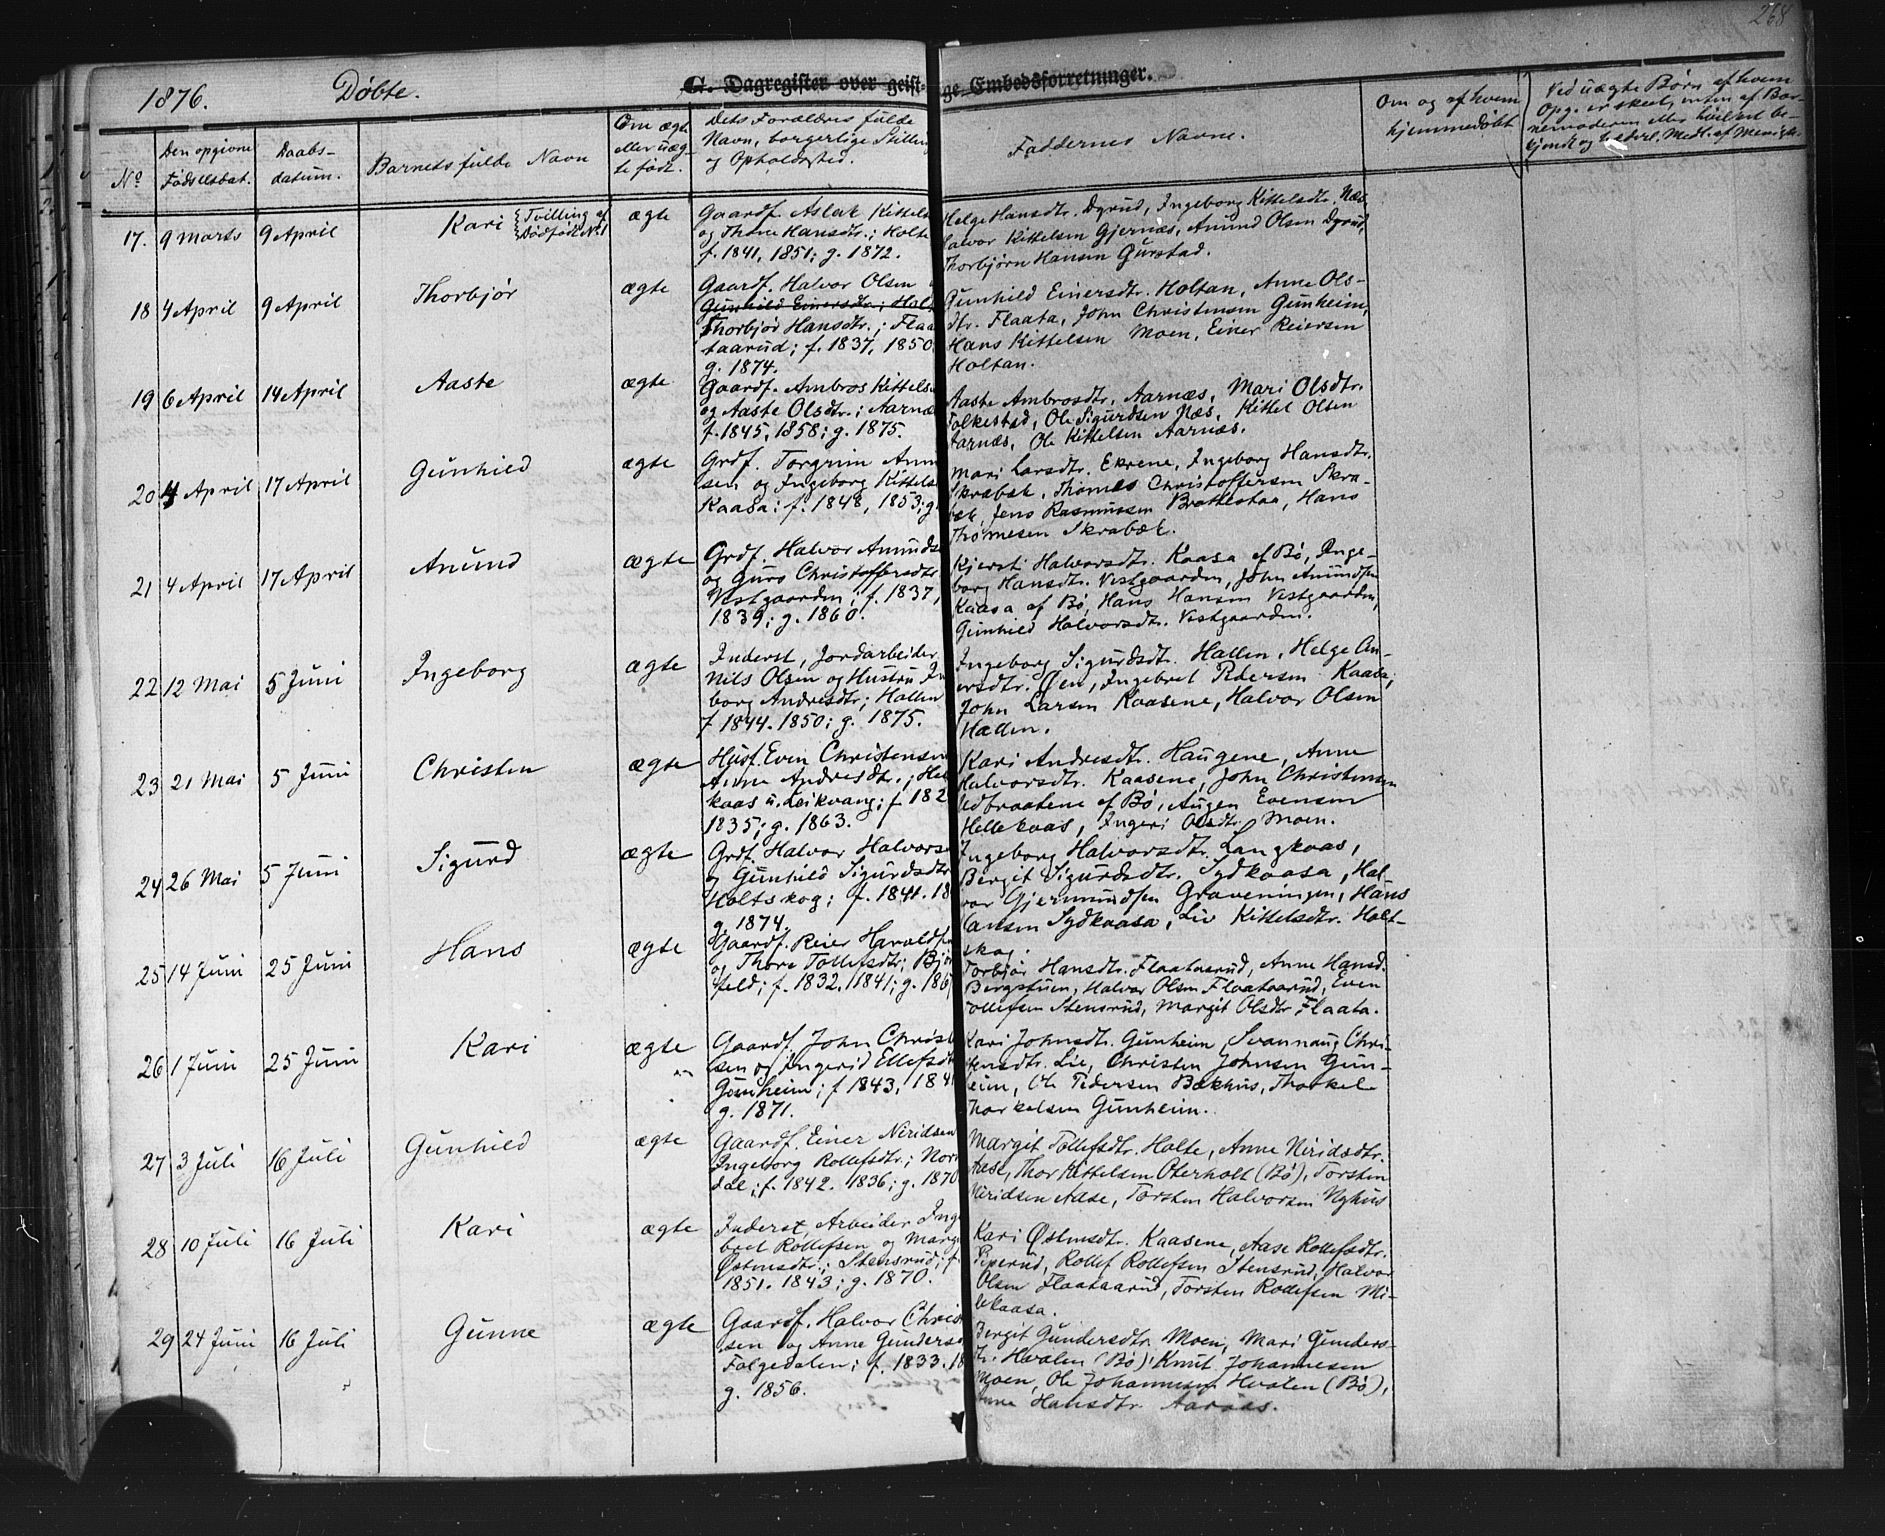 268
1876.
Døbte.
G. Dagregister over geist-
ge Embedsforretninger.
No
Den opgivne
Fødselsdat.
Daabs-
datum.
Barnets fulde Navn
Om ægte
eller uæg-
te født.
Dets Forældres fulde
Navn, borgerlige Stilling
og Opholdssted.
Faddernes Navne.
Om og af hvem
hjemmedøbt
Ved uægte Børn af hvem
Opg. er skeet, enten af Bar-
nemoderen eller hvilket be-
kjendt og bederl. Medl. af Menigh.
17. 9 Marts 9 April Kari {Tvilling af
Dødfødt No 1
ægte
Gaardf. Aslak Kittels
og Thore Hansdtr.; Holte
f. 1841, 1851; g. 1872.
Helge Hansdtr. Dyrud, Ingeborg Kittelsdtr. Næs
Halvor Kittelsen Gjernæs, Amund Olsen Dyrud,
Thorbjørn Hansen Gurstad.
18 4 April 9 April Thorbjør ægte
Gaardf. Halvor Olsen
Gunhild Einersdtr.; Hol
Thorbjør Hansdtr.; Flaa
taarud; f. 1837, 1850
g. 1874.
Gunhild Einersdtr. Holtan, Anne Ols-
dtr. Flaata, John Christensen Gunheim,
Hans Kittelsen Moen, Einer Reiersen
Holtan.
19 6 April 14 April Aaste ægte
Gaardf. Ambros Kittels
og Aaste Olsdtr.; Aarnæ
f. 1845, 1858; g. 1875.
Aaste Ambrosdtr. Aarnæs, Mari Olsdtr.
Folkestad, Ole Sigurdsen Næs, Kittel Olsen
Aarnæs, Ole Kittelsen Aarnæs.
20 4 April 17 April Gunhild ægte
Grdf. Torgrim Amn
sen og Ingeborg Kittels
Kaasa; f. 1848, 1853; g
Mari Larsdtr. Ekrene, Ingeborg Hansdtr.
Skrabæk, Thomas Christoffersen Skra-
bæk, Jens Rasmussen Brattestaa, Hans
Thomesen Skrabæk.
21 4 April 17 April Anund ægte
Grdf. Halvor Anunds
og Guro Christoffersdtr
Vestgaarden; f. 1837,
1839; g. 1860.
Kjersti Halvorsdtr. Kaasa af Bø, Inge-
borg Hansdtr. Vestgaarden, John Anundsen
Kaasa af Bø, Hans Hansen Vestgaarden,
Gunhild Halvorsdtr. Vestgaarden.
22 12 Mai 5 Juni Ingeborg ægte
Inderst, Jordarbeider
Nils Olsen og Hustru In
borg Andresdtr; Hallen
f 1844. 1850; g. 1875.
Ingeborg Sigurdsdtr. Hallen, Helge An-
ersdtr. Øen, Ingebret Pedersen Kaasa,
John Larsen Kaasene, Halvor Olsen
Hallen.
23 21 Mai 5 Juni Christen ægte
Husf. Even Christensen
Anne Andresdtr.; Hel
kaas u. Leikvang; f. 182
1835; g. 1863.
Kari Andresdtr. Haugene, Anne
Halvorsdtr. Kaasene, John Christensen
Udbraatene af Bø, Augen Evensen
Hellekaas, Ingeri Olsdtr. Moen.
24 26 Mai 5 Juni Sigurd ægte
Grdf. Halvor Halvors
og Gunhild Sigurdsdtr
Holtskog; f. 1841. 18
g. 1874.
Ingeborg Halvorsdtr. Langkaas,
Bergit Sigurdsdtr. Sydkaasa, Hal-
vor Gjermundsen Graveningen, Hans
Hansen Sydkaasa, Liv Kittelsdtr. Holt-
skog.
25 14 Juni 25 Juni Hans ægte
Gaardf. Reier Haraldsen
og Thore Tollefsdtr; Bjør
feld; f. 1832, 1841; g. 186
Torbjør Hansdtr. Flaataarud, Anne Hansd.
Bergstuen, Halvor Olsen Flaataarud, Even
Tollefsen Stensrud, Margit Olsdtr Flaata.
26 1 Juni 25 Juni Kari ægte
Gaardf. John Christ
sen og Ingerid Ellefsdt
Gunheim; f 1843, 184
g. 1871.
Kari Johnsdtr. Gunheim, Svannaug Chri-
stensdtr. Lie, Christen Johnsen Gun-
heim, Ole Pedersen Bakhus, Thorkel
Thorkelsen Gunheim.
27 3 Juli 16 Juli Gunhild ægte
Gaardf. Einer Niridsen
Ingeborg Rollefsdtr.; Nor
dal; f. 1842. 1836; g. 1870
Margit Tollefsdtr. Holte, Anne Niridsdtr.
Aase, Thor Kittelsen Oterholt (Bø), Torsten
Niridsen Aase, Torsten Halvorsen Nyhus
28 10 Juli 16 Juli Kari ægte
Inderst, Arbeider Inge
bret Rollefsen og Marg
Østensdtr.; Stensrud; f
1851. 1843; g. 1870.
Kari Østensdtr. Kaasene, Aase Rollefsdtr.
Piperud, Rollef Rollefsen Stensrud, Halvor
Olsen Flaataarud, Torsten Rollefsen Mi-
lekaasa.
29 24 Juni 16 Juli Gunne ægte
Gaardf. Halvor Chris
sen og Anne Gunders
Folgedalen; f. 1833. 18
g. 1856.
Bergit Gundersdtr. Moen, Mari Gunders-
dtr. Hvalen (Bø), Knut Johannesen
Moen, Ole Johannesen Hvalen (Bø),
Anne Hansdtr. Aaraas.